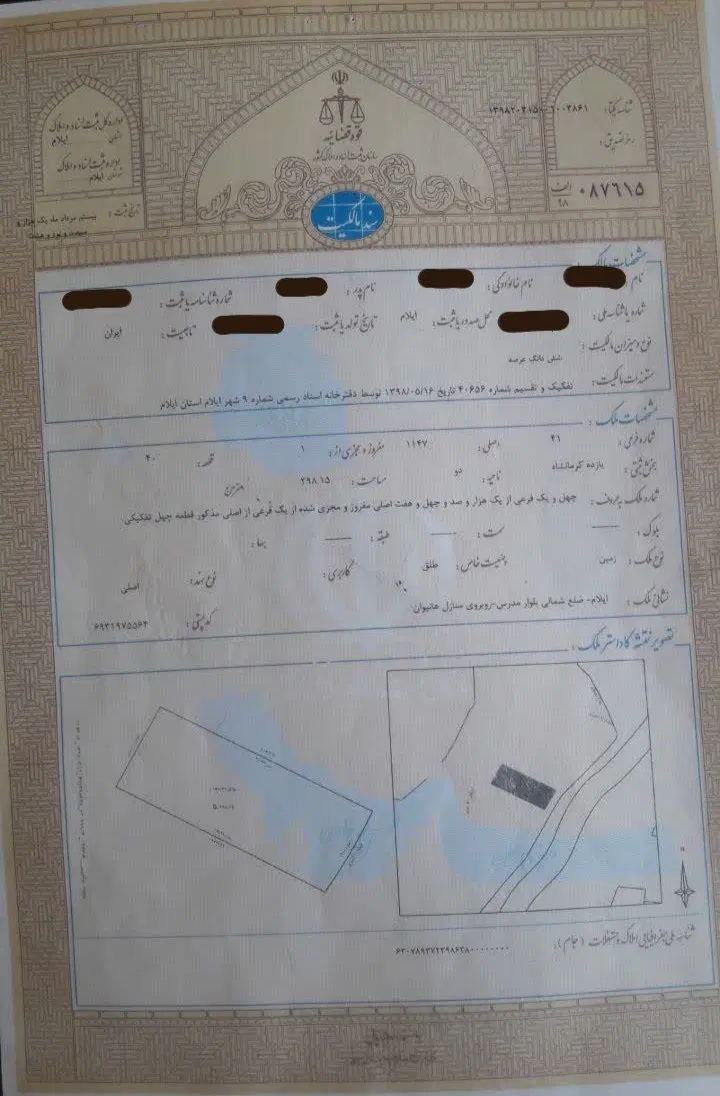 قوه قضائیه
سازمان ثبت اسناد و املاک کشور
اداره کل ثبت اسناد و املاک
استان ایلام
اداره ثبت اسناد و املاک
شهرستان ایلام
تاریخ ثبت : بیستم مرداد ماه یک هزار و سیصد و نود و هشت
شناسه یکتا:
رمز تصدیق:
الف ۹۸ ۰۸۷۶۱۵
سند مالکیت
مشخصات مالک :
نام : نام خانوادگی : نام پدر : شماره شناسنامه یا ثبت :
شماره یا شناسه ملی : محل صدور یا ثبت : ایلام تاریخ تولد یا ثبت : تابعیت : ایران
نوع و میزان مالکیت : شش دانگ عرصه
مستندات مالکیت : تفکیک و تقسیم شماره ۴۰۶۵۶ تاریخ ۱۳۹۸/۰۵/۱۶ توسط دفترخانه اسناد رسمی شماره ۹ شهر ایلام استان ایلام
مشخصات ملک :
شماره فرعی : ۴۱ اصلی : ۱۱۴۷ مفروز و مجزی از : ۱ قطعه : ۴۰
بخش ثبتی : یازده کرمانشاه ناحیه : دو مساحت : ۲۹۸.۱۵ مترمربع
شماره ملک به حروف : چهل و یک فرعی از یک هزار و صد و چهل و هفت اصلی مفروز و مجزی شده از یک فرعی از اصلی مذکور قطعه چهل تفکیکی
بلوک : —— سمت : —— طبقه : —— بها :
نوع ملک : زمین وضعیت خاص : طلق کاربری : نوع سند : اصلی
نشانی ملک : ایلام- ضلع شمالی بلوار مدرس-روبروی منازل هانیوان
کد پستی : ۶۹۳۱۹۷۵۵۶۴
تصویر نقشه کاداستر ملک :
N
شناسه ملی جغرافیایی املاک و مستغلات ( جام ):